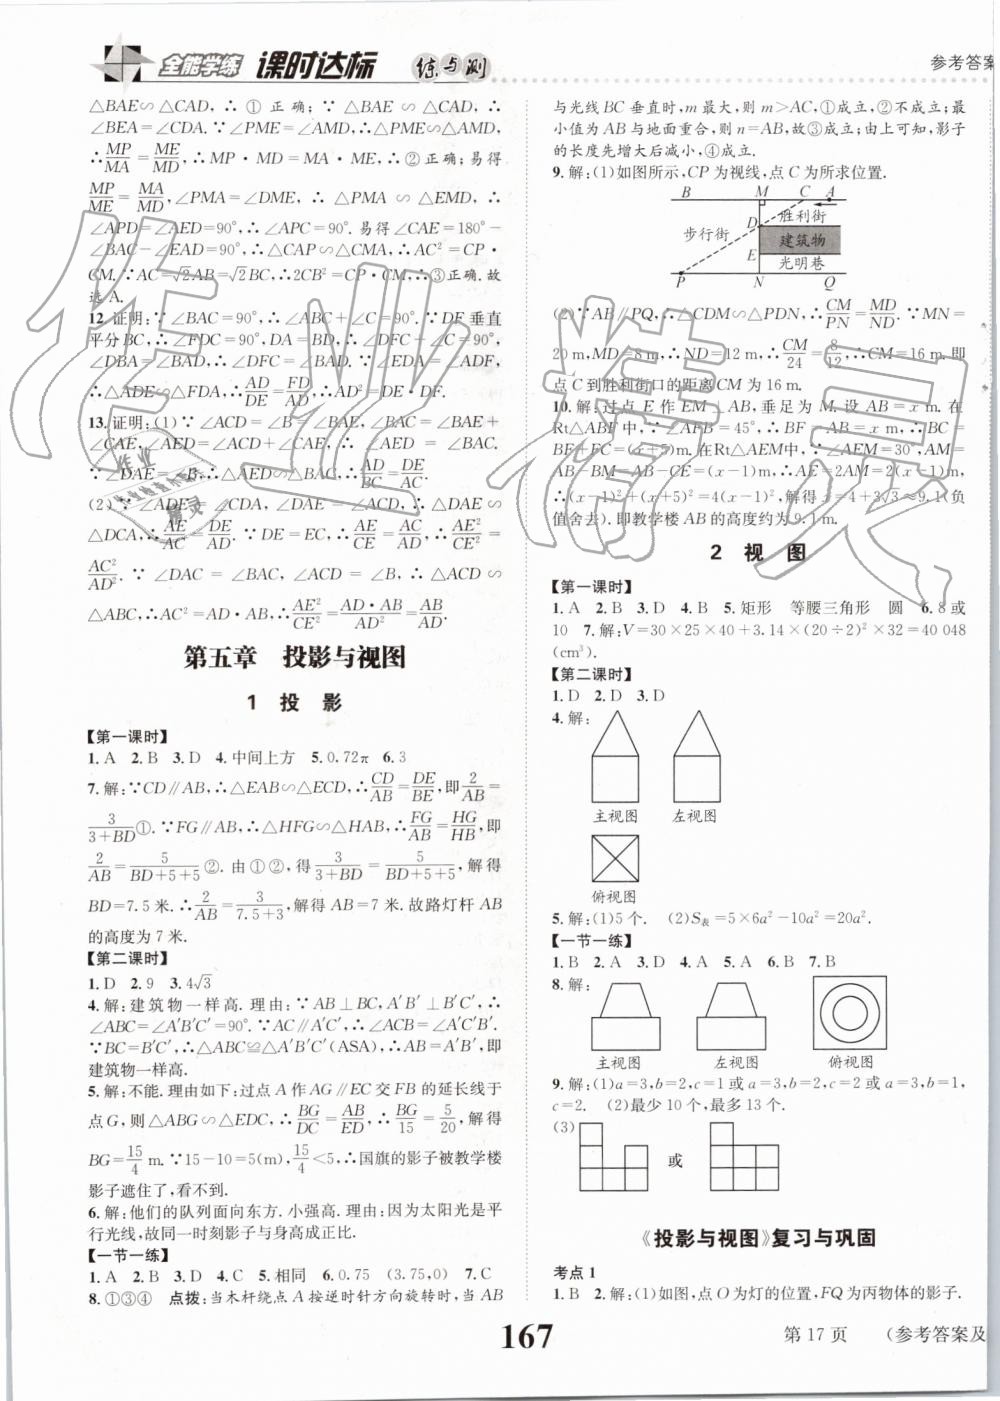 全能学练 课时达标 练与测
参考答案
△BAE∽△CAD,∴①正确;∵△BAE∽△CAD,∴
∠BEA=∠CDA.∵∠PME=∠AMD,∴△PME∽△AMD,
∴MP/MA=ME/MD,∴MP·MD=MA·ME,∴②正确;易得
MP/ME=MA/MD,∠PMA=∠DME,∴△PMA∽△EMD,∴
∠APD=∠AED=90°,∴∠APC=90°.易得∠CAE=180°-
∠BAC-∠EAD=90°,∴△CAP∽△CMA,∴AC²=CP·
CM.∵AC=√2AB=√2BC,∴2CB²=CP·CM,∴③正确.故
选A.
12.证明:∵∠BAC=90°,∴∠ABC+∠C=90°.∵DF垂直
平分BC,∴∠FDC=90°,DA=BD,∴∠DFC+∠BAD=90°,
∠DBA=∠BAD,∴∠DFC=∠BAD.∵∠EDA=∠ADF,
∴△ADE∽△FDA,∴AD/DE=FD/AD,∴AD²=DE·DF.
13.证明:(1)∵∠ACD=∠B=∠BAE,∠BAC=∠BAE+
∠CAE,∠AED=∠ACD+∠CAE,∴∠AED=∠BAC.
∵∠DAE=∠B,∴△AED∽△BAC,∴AD/BC=DE/AC.
(2)∵∠ADE=∠CDA,∠DAE=∠ACD,∴△DAE∽
△DCA,∴AE/AC=DE/AD.∵DE=EC,∴AE/CE=AC/AD,∴AE²/CE²=
AC²/AD².∵∠DAC=∠BAC,∠ACD=∠B,∴△ACD∽
△ABC,∴AC²=AD·AB,∴AE²/CE²=AD·AB/AD²=AB/AD.
第五章 投影与视图
1 投 影
【第一课时】
1.A 2.B 3.D 4.中间上方 5.0.72π 6.3
7.解:∵CD∥AB,∴△EAB∽△ECD,∴CD/AB=DE/BE,即2/AB=
3/3+BD①.∵FG∥AB,∴△HFG∽△HAB,∴FG/AB=HG/HB,即
2/AB=5/BD+5+5②.由①②,得3/3+BD=5/BD+5+5,解得
BD=7.5米.∴2/AB=3/7.5+3,解得AB=7米.故路灯杆AB
的高度为7米.
【第二课时】
1.D 2.9 3.4√3
4.解:建筑物一样高.理由:∵AB⊥BC,A′B′⊥B′C′,∴
∠ABC=∠A′B′C′=90°.∵AC∥A′C′,∴∠ACB=∠A′C′B′.
∵BC=B′C′,∴△ABC≌△A′B′C′(ASA),∴AB=A′B′,即
建筑物一样高.
5.解:不能.理由如下:过点A作AG∥EC交FB的延长线于
点G,则△ABG∽△EDC,∴BG/DC=AB/ED,∴BG/15=5/20,解得
BG=15/4 m.∵15-10=5(m),15/4<5,∴国旗的影子被教学楼
影子遮住了,看不到.
6.解:他们的队列面向东方.小强高.理由:因为太阳光是平
行光线,故同一时刻影子与身高成正比.
【一节一练】
1.A 2.B 3.D 4.C 5.相同 6.0.75 (3.75,0) 7.C
8.①③④ 点拨:当木杆绕点A按逆时针方向旋转时,当AB
与光线BC垂直时,m最大,则m>AC,①成立,②不成立;最
小值为AB与地面重合,则n=AB,故③成立;由上可知,影子
的长度先增大后减小,④成立.
9.解:(1)如图所示,CP为视线,点C为所求位置.
B M C A
胜利街
D
步行街
建筑物
E
光明巷
P N Q
(2)∵AB∥PQ,∴△CDM∽△PDN,∴CM/PN=MD/ND.∵MN=
20 m,MD=8 m,∴ND=12 m,∴CM/24=8/12,∴CM=16 m.即
点C到胜利街口的距离CM为16 m.
10.解:过点E作EM⊥AB,垂足为M.设AB=x m.在
Rt△ABF中,∵∠AFB=45°,∴BF=AB=x m,∴BC=
BF+FC=(x+5)m.在Rt△AEM中,∵∠AEM=30°,AM=
AB-BM=AB-CE=(x-1)m,∴AE=2AM=2(x-1)m,
∴(x-1)²+(x+5)²=4(x-1)²,解得x=4+3√3≈9.1(负
值舍去).即教学楼AB的高度约为9.1 m.
2 视 图
【第一课时】
1.A 2.B 3.D 4.B 5.矩形 等腰三角形 圆 6.8或
10 7.解:V=30×25×40+3.14×(20÷2)²×32=40 048
(cm³).
【第二课时】
1.D 2.D 3.D
4.解:
主视图 左视图
俯视图
5.解:(1)5个. (2)S表=5×6a²-10a²=20a².
【一节一练】
1.B 2.A 3.D 4.A 5.A 6.B 7.B
8.解:
主视图 左视图 俯视图
9.解:(1)a=3,b=2,c=1或a=3,b=2,c=2或a=3,b=1,
c=2. (2)最少10个,最多13个.
(3)
或
《投影与视图》复习与巩固
考点1
1.B 2.解:(1)如图,点O为灯的位置,FQ为丙物体的影子.
167
第17页 (参考答案及
作业精灵